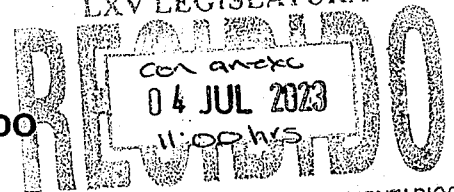 LXV LEGISLATURA
RECIBIDO
con anexo
04 JUL 2023
11:00 hrs
DO